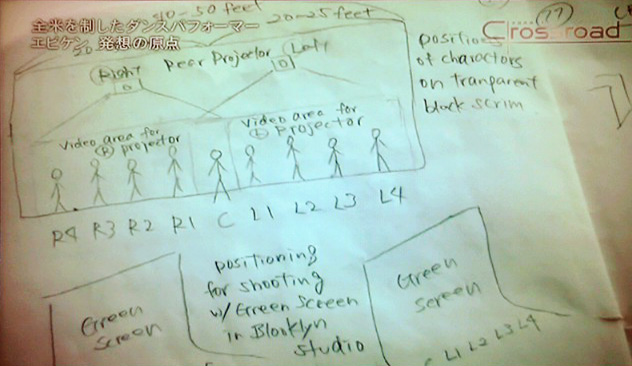 全米を制したダンスパフォーマー
エビケン 発想の原点
Crossroad
(17)
40-50 feet
20-25 feet
Right
Rear Projector
Left
positions
of charactors
on tranparent
black scrim
Video area for
Ⓡ projector
Video area for
Ⓛ projector
R4 R3 R2 R1 C L1 L2 L3 L4
positioning
for shooting
w/ Green Screen
in Blooklyn
studio
Green
Screen
Green
Screen
L1 L2 L3 L4